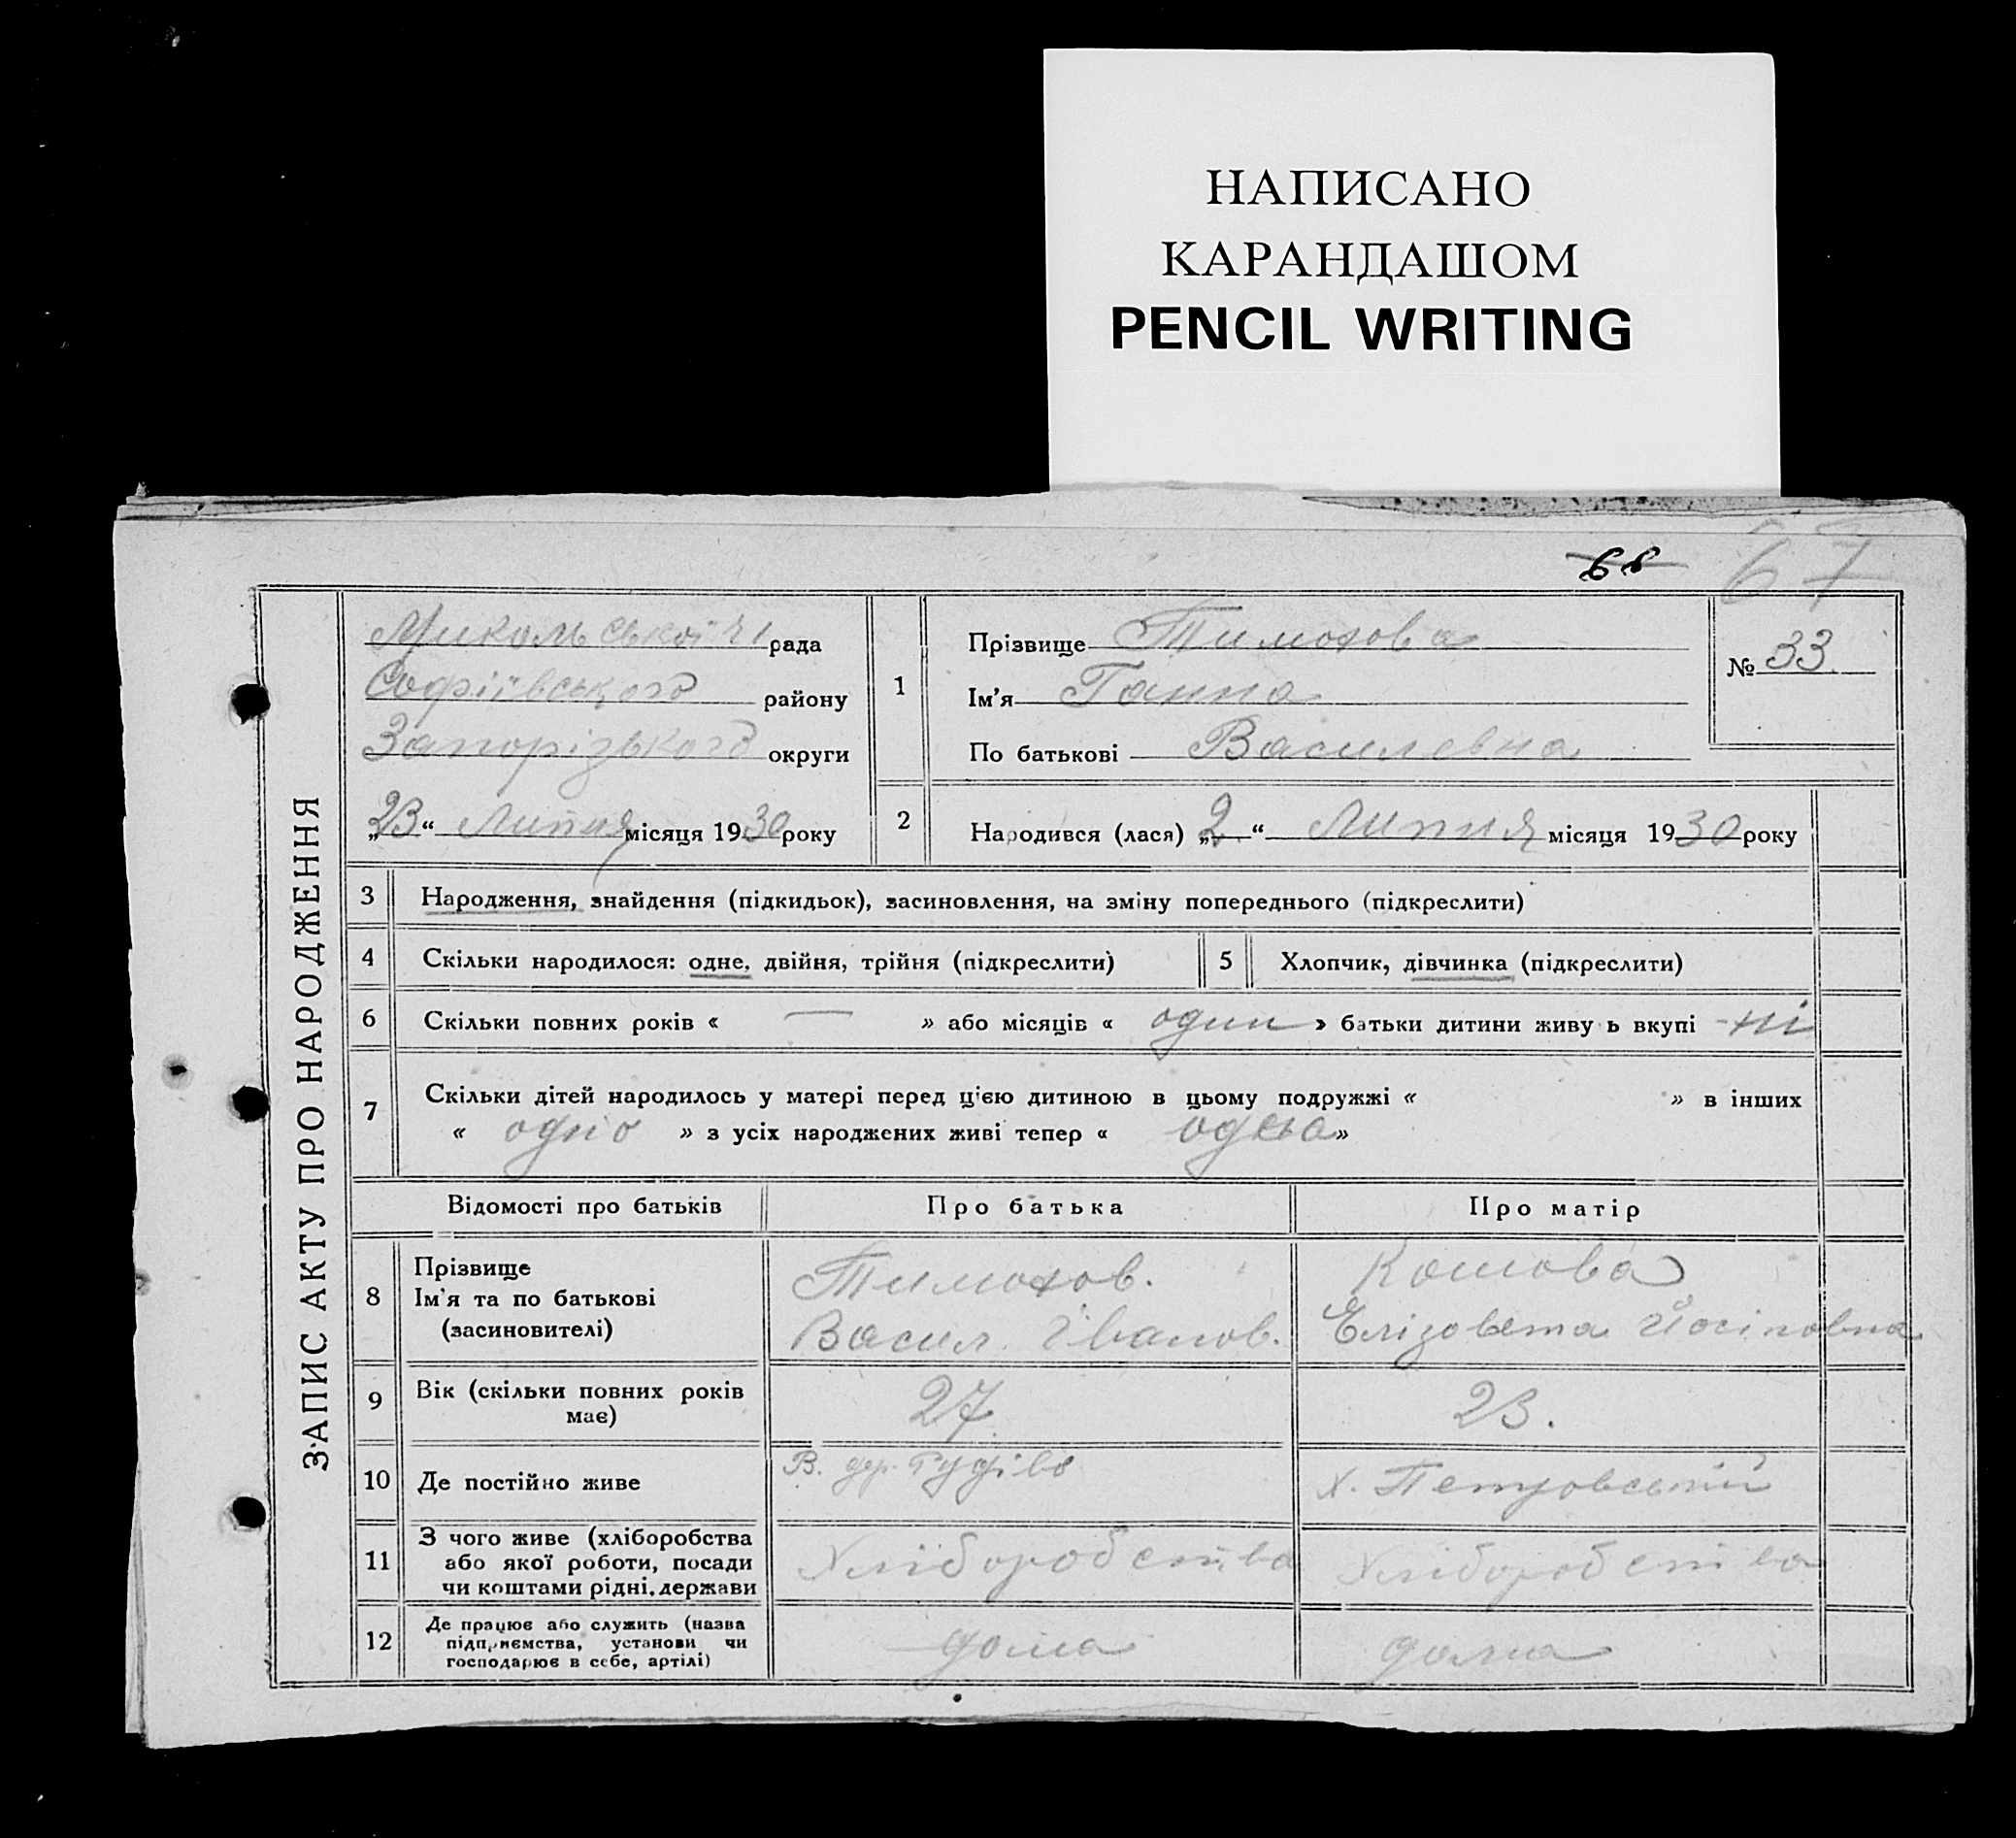 НАПИСАНО
КАРАНДАШОМ
PENCIL WRITING
68 67
ЗАПИС АКТУ ПРО НАРОДЖЕННЯ
Микольської рада
Софіївського району
Запорізького округи
„23“ Липня місяця 1930 року
1
Прізвище Тимохова
Ім’я Ганна
По батькові Василевна
№ 33.
2 Народився (лася) „2.“ Липня місяця 1930 року
3 Народження, знайдення (підкидьок), засиновлення, на зміну попереднього (підкреслити)
4 Скільки народилося: одне, двійня, трійня (підкреслити) 5 Хлопчик, дівчинка (підкреслити)
6 Скільки повних років « — » або місяців « один » батьки дитини живу ь вкупі - ні
7 Скільки дітей народилось у матері перед цією дитиною в цьому подружжі « » в інших
« одно » з усіх народжених живі тепер « »
Відомості про батьків Про батька Про матір
8 Прізвище
Ім’я та по батькові
(засиновителі)
Тимохов.
Васил. Іванов.
Єлізовета Йосіповна
9 Вік (скільки повних років
має)
27. 23.
10 Де постійно живе В. дер. х. Петровський
11 З чого живе (хліборобства
або якої роботи, посади
чи коштами рідні, держави
Хліборобства Хліборобства
12 Де працює або служить (назва
підприємства, установи чи
господарює в себе, артілі)
дома дома